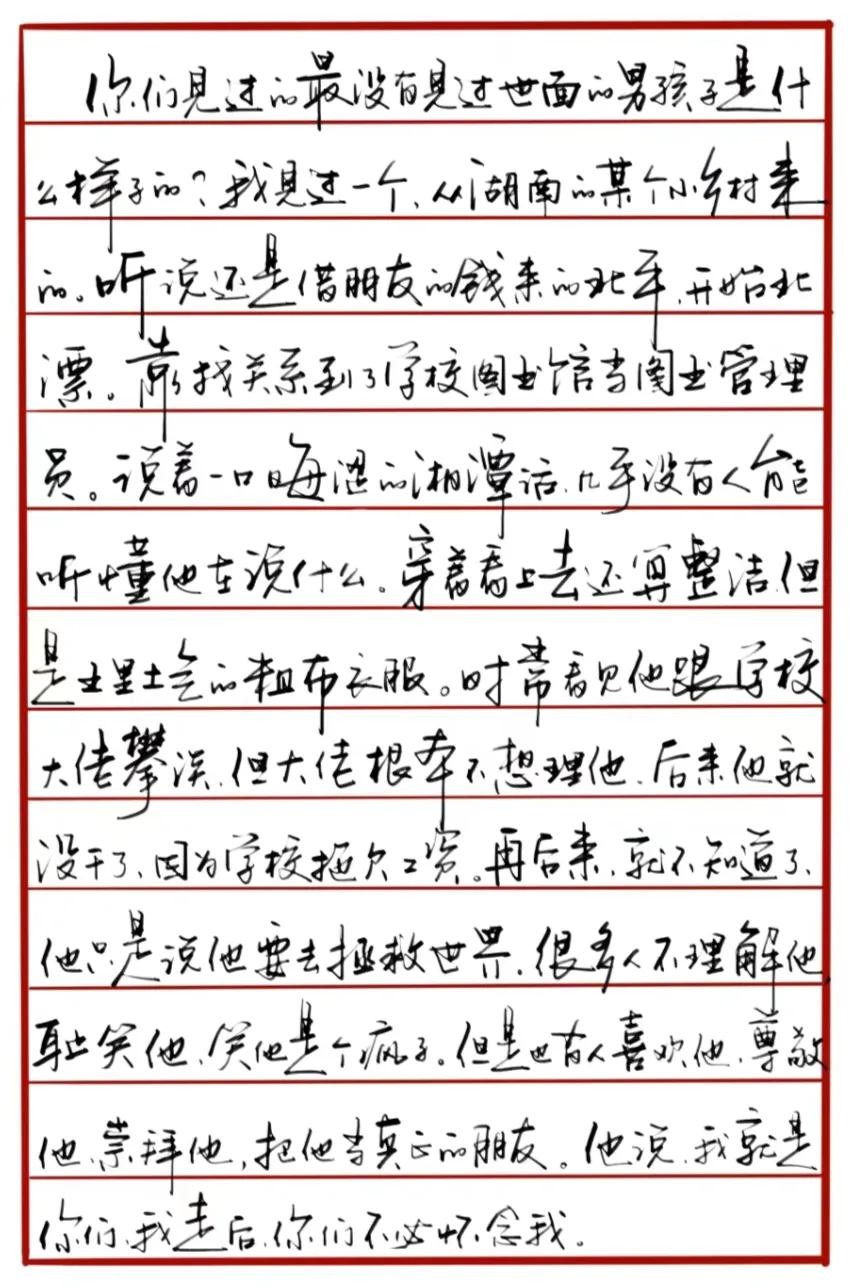 你们见过的最没有见过世面的男孩子是什
么样子的？我见过一个，从湖南的某个小乡村来
的。听说还是借朋友的钱来的北平，开始北
漂。靠找关系到了学校图书馆当图书管理
员。说着一口晦涩的湘潭话，几乎没有人能
听懂他在说什么。穿着看上去还算整洁，但
是土里土气的粗布衣服。时常看见他跟学校
大佬攀谈，但大佬根本不想理他，后来他就
没干了，因为学校拖欠工资。再后来，就不知道了，
他只是说他要去拯救世界，很多人不理解他，
耻笑他，笑他是个疯子。但是也有人喜欢他，尊敬
他，崇拜他，把他当真正的朋友。他说，我就是
你们，我走后，你们不必怀念我。